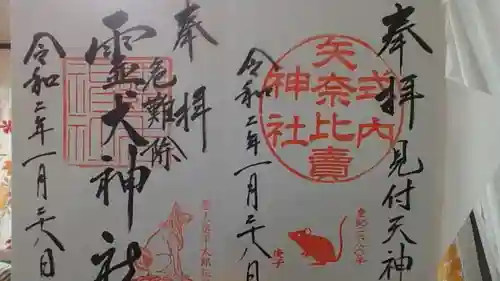 奉拝 見付天神
式内
矢奈比賣
神社
令和二年一月二十八日
庚子
奉拝
危難除
霊犬神社
令和二年一月二十八日